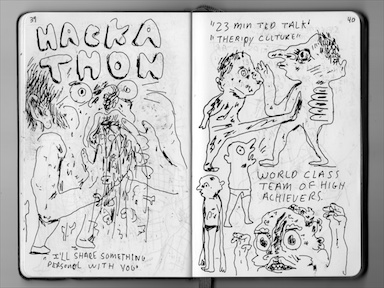 39
HACKA
THON
"I'LL SHARE SOMETHING
PERSONAL WITH YOU"
40
"23 MIN TED TALK"
"THERIPY CULTURE"
WORLD CLASS
TEAM OF HIGH
ACHIEVERS